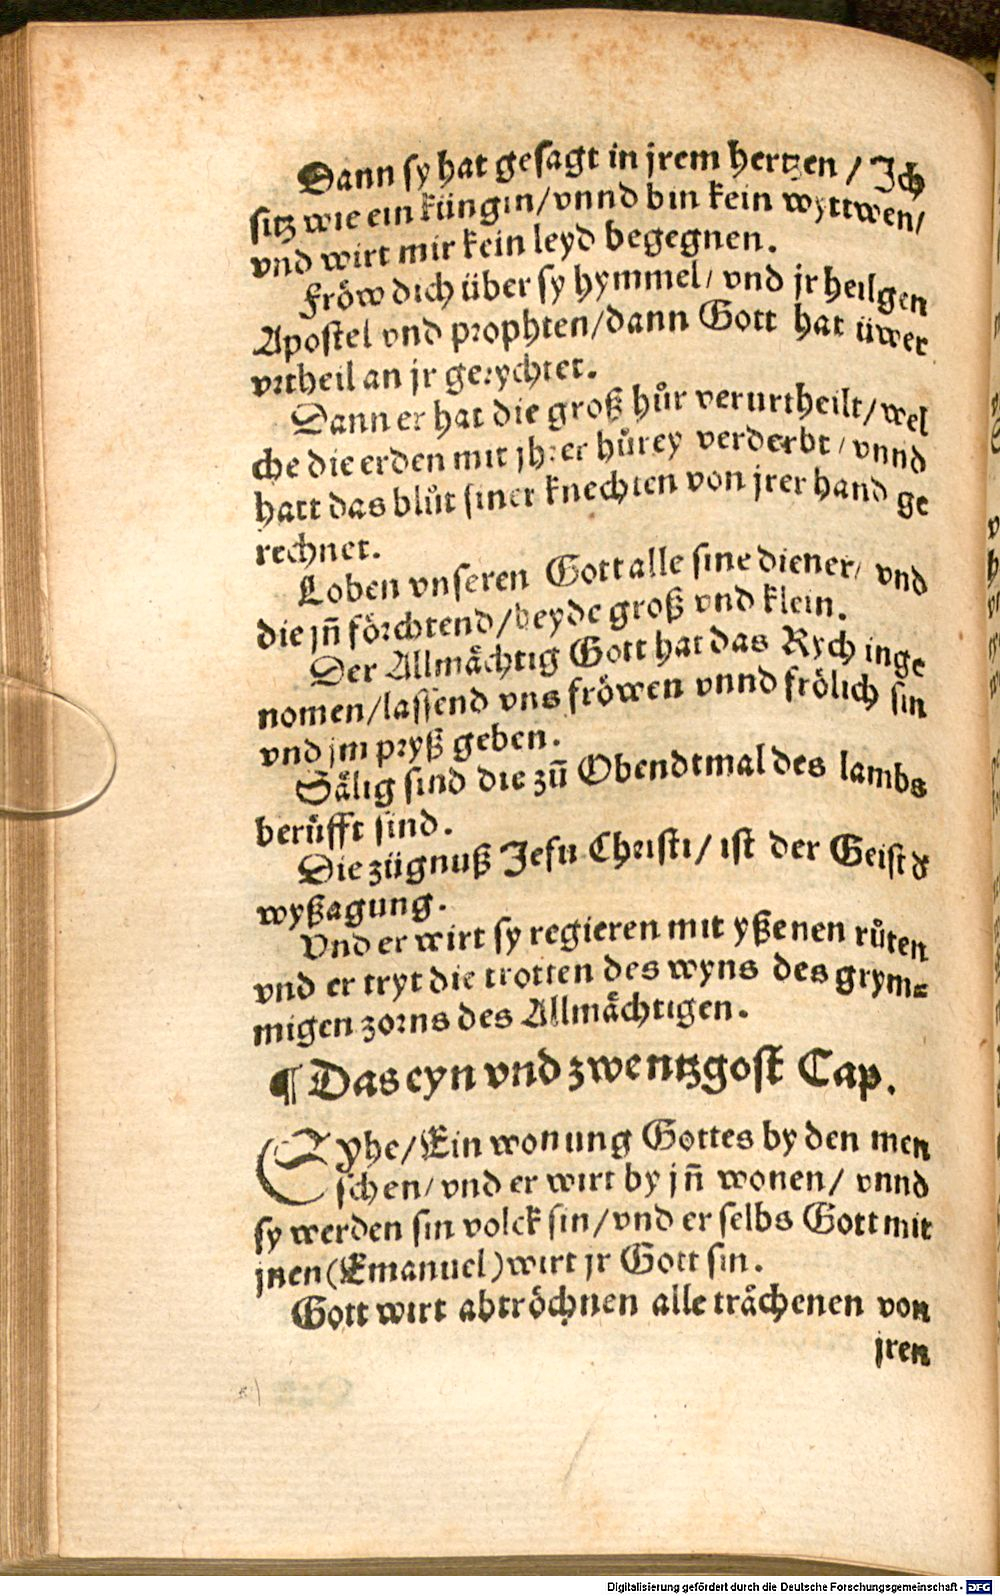 Dann sy hat gesagt in jrem hertzen / Ich
sitz wie ein küngin/vnnd bin kein wyttwen/
vnd wirt mir kein leyd begegnen.
Fröw dich über sy hymmel/ vnd jr heilgen
Apostel vnd prophten/dann Gott hat üwer
vrtheil an jr gerychtet.
Dann er hat die groß hůr verurtheilt/wel
che die erden mit jhrer hůrey verderbt/ vnnd
hatt das blůt siner knechten von jrer hand ge
rechnet.
Loben vnseren Gott alle sine diener/ vnd
die jn̄ förchtend/beyde groß vnd klein.
Der Allmächtig Gott hat das Rych inge
nomen/lassend vns fröwen vnnd frölich sin
vnd jm pryß geben.
Sälig sind die zů Obendtmal des lambs
berüfft sind.
Die zügnuß Jesu Christi/ ist der Geist d
wyßagung.
Vnd er wirt sy regieren mit yßenen růten
vnd er tryt die trotten des wyns des grym⸗
migen zorns des Allmächtigen.
¶ Das eyn vnd zwentzgost Cap.
Syhe/Ein wonung Gottes by den men
schen/ vnd er wirt by jn̄ wonen/ vnnd
sy werden sin volck sin/vnd er selbs Gott mit
jnen(Emanuel)wirt jr Gott sin.
Gott wirt abtröchnen alle trächenen von
jren
Digitalisierung gefördert durch die Deutsche Forschungsgemeinschaft - DFG